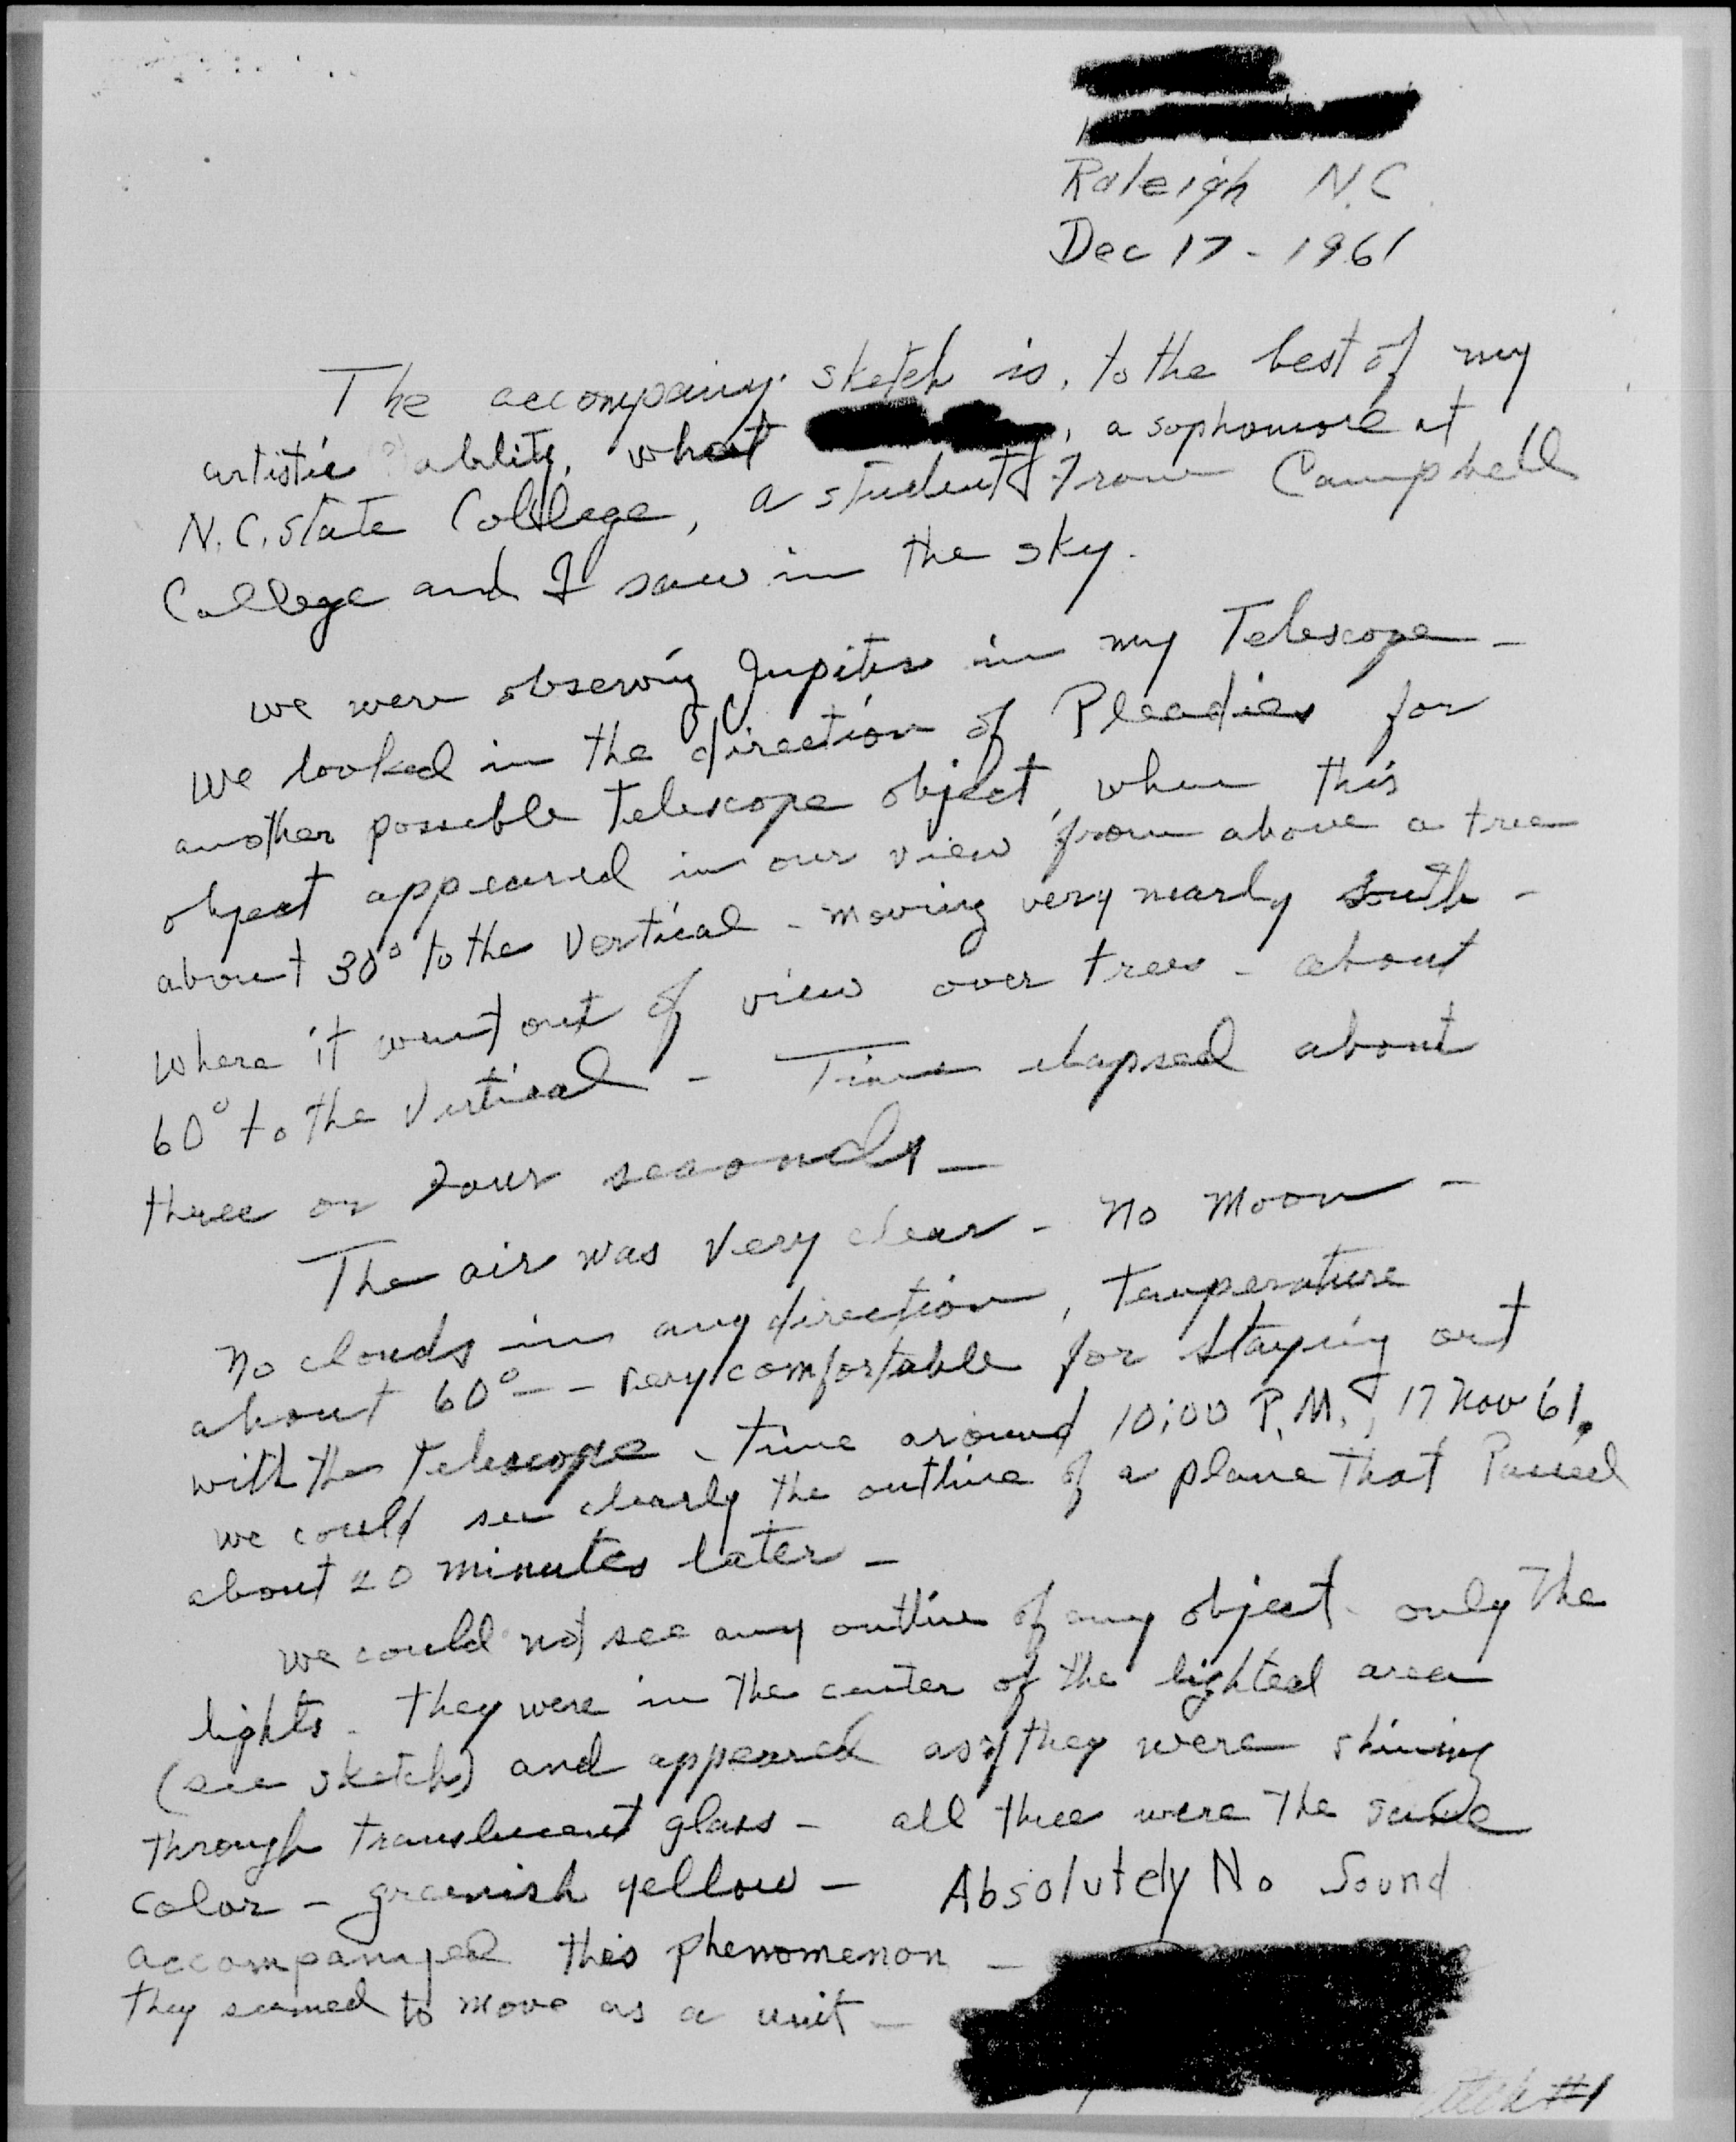 Raleigh N.C.
Dec 17 - 1961
The accompaning sketch is, to the best of my
artistic ability, what , a sophomore at
N.C. State College, a student from Campbell
College and I saw in the sky.
we were observing Jupiter in my Telescope -
we looked in the direction of Pleadies for
another possible telescope object, when this
object appeared in our view from above a tree
about 30° to the vertical - moving very nearly south -
where it went out of view over trees - about
60° to the vertical - Time elapsed about
three or four seconds -
The air was very clear - no moon -
no clouds in any direction, temperature
about 60° - - very comfortable for staying out
with the telescope - time around 10:00 P.M., 17 Nov 61.
we could see clearly the outline of a plane that Passed
about 20 minutes later -
we could not see any outline of any object - only the
lights - they were in the center of the lighted area
(see sketch) and appeared as if they were shining
through translucent glass - all three were the same
color - greenish yellow - Absolutely No Sound
accompanied this phenomenon -
they seemed to move as a unit -
#1